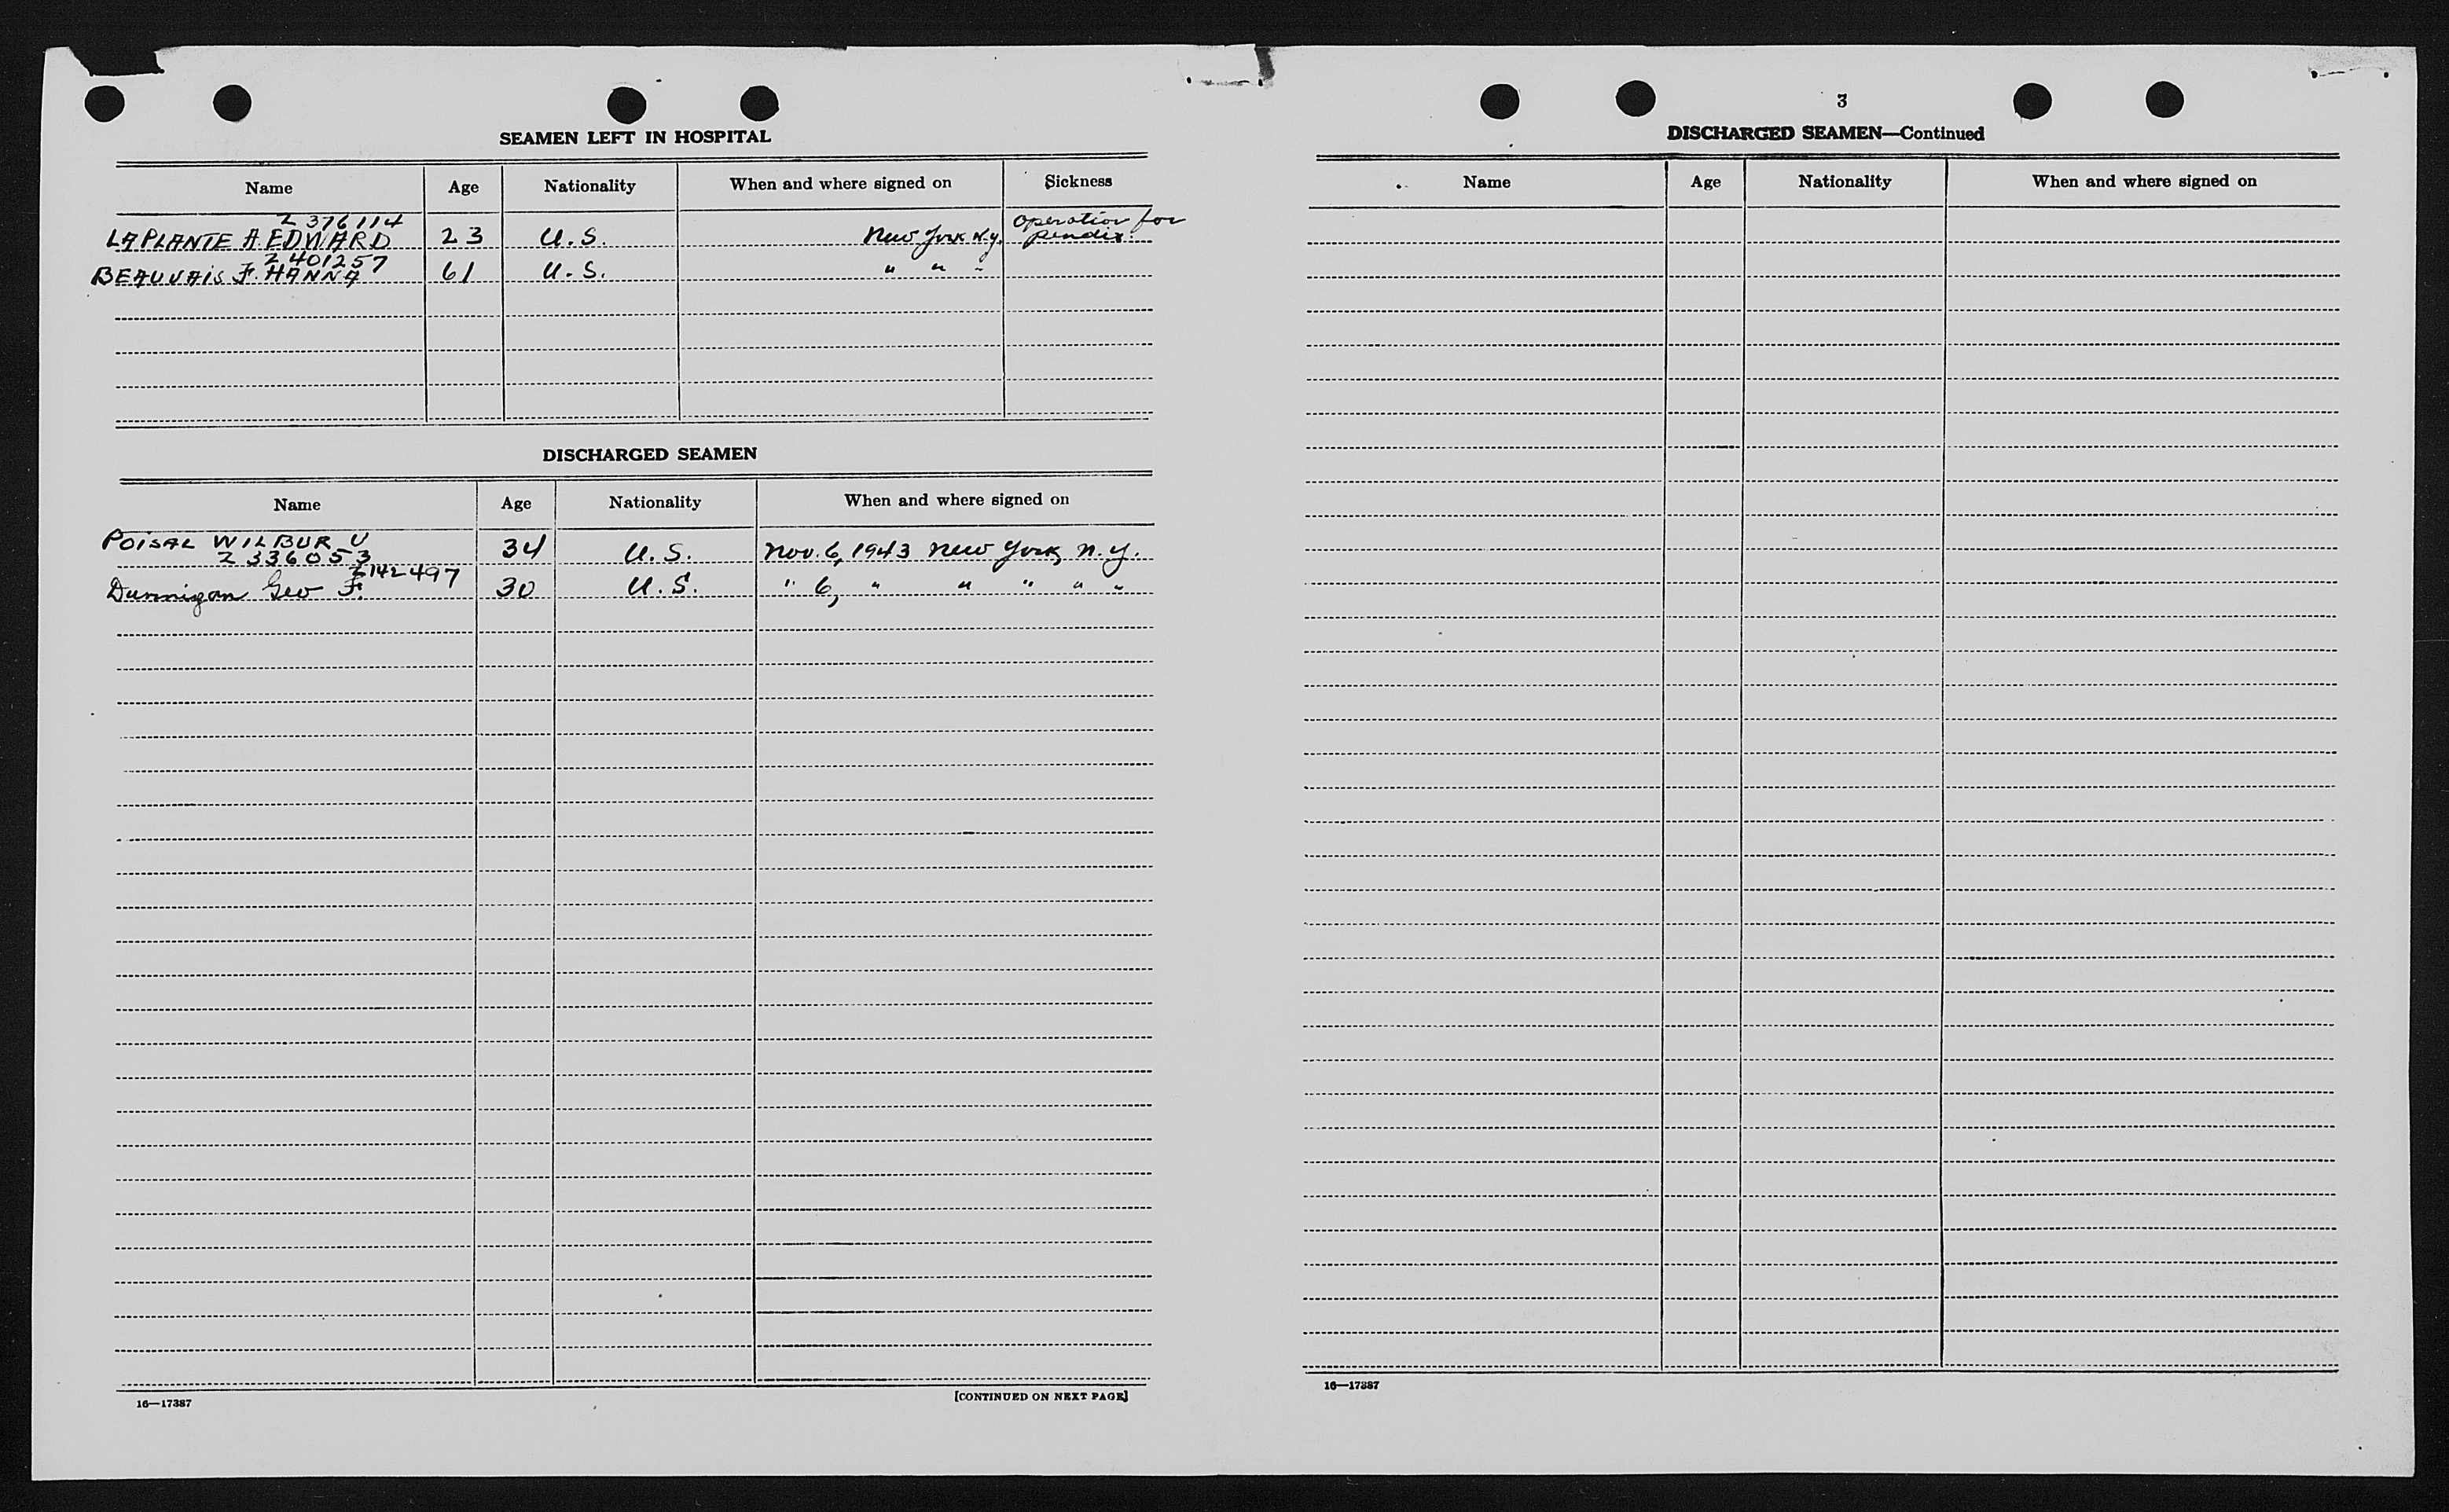 SEAMEN LEFT IN HOSPITAL
Name Age Nationality When and where signed on Sickness
Z 376114
LAPLANTE A. EDWARD 23 U.S. New York N.y. Operation for
pendix.
Z 401257
BEAUVAIS F. HANNA 61 U.S. " " "
DISCHARGED SEAMEN
Name Age Nationality When and where signed on
POISAL WILBUR U 34 U.S. Nov. 6, 1943 New York, N.Y.
Z 336053
Z142497
Dunnigan Geo F. 30 U.S. " 6, " " " " "
16—17387 [CONTINUED ON NEXT PAGE]
3
DISCHARGED SEAMEN—Continued
Name Age Nationality When and where signed on
16—17387